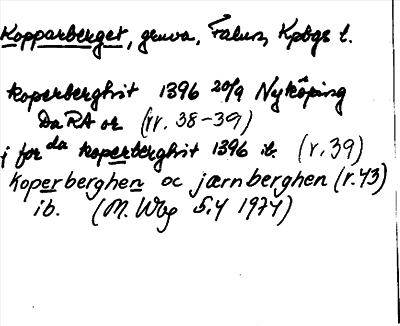 Kopparberget, gruva, Falun, Kpbgs l.
koperberghit 1396 20/9 Nyköping
DaRA or (rr. 38-39)
j for da koperberghit 1396 ib. (r. 39)
koperberghen oc jærnberghen (r. 43)
ib. (M. Wbg 5.4 1974)